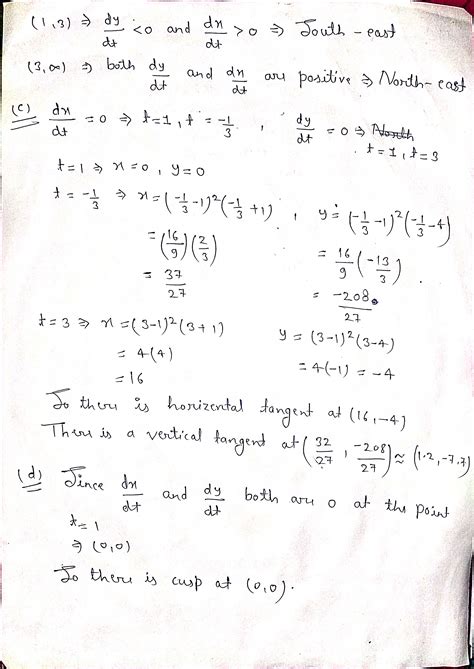 (1,3) ⇒ dy/dt <0 and dx/dt >0 ⇒ South-east
(3,∞) ⇒ both dy/dt and dx/dt are positive ⇒ North-east
(c) dx/dt = 0 ⇒ t=1, t = -1/3 , dy/dt = 0 ⇒ North
t=1, t=3
t=1 ⇒ x=0, y=0
t = -1/3 ⇒ x=(-1/3 -1)²(-1/3 +1) , y= (-1/3 -1)²(-1/3 -4)
= (16/9)(2/3) = 16/9 (-13/3)
= 37/27 = -208/27
t=3 ⇒ x=(3-1)²(3+1) y = (3-1)²(3-4)
= 4(4) = 4(-1) = -4
=16
So there is horizental tangent at (16,-4)
There is a vertical tangent at (32/27 , -208/27) ≈ (1.2, -7.7)
(d) Since dx/dt and dy/dt both are 0 at the point
t=1
⇒ (0,0)
So there is cusp at (0,0).